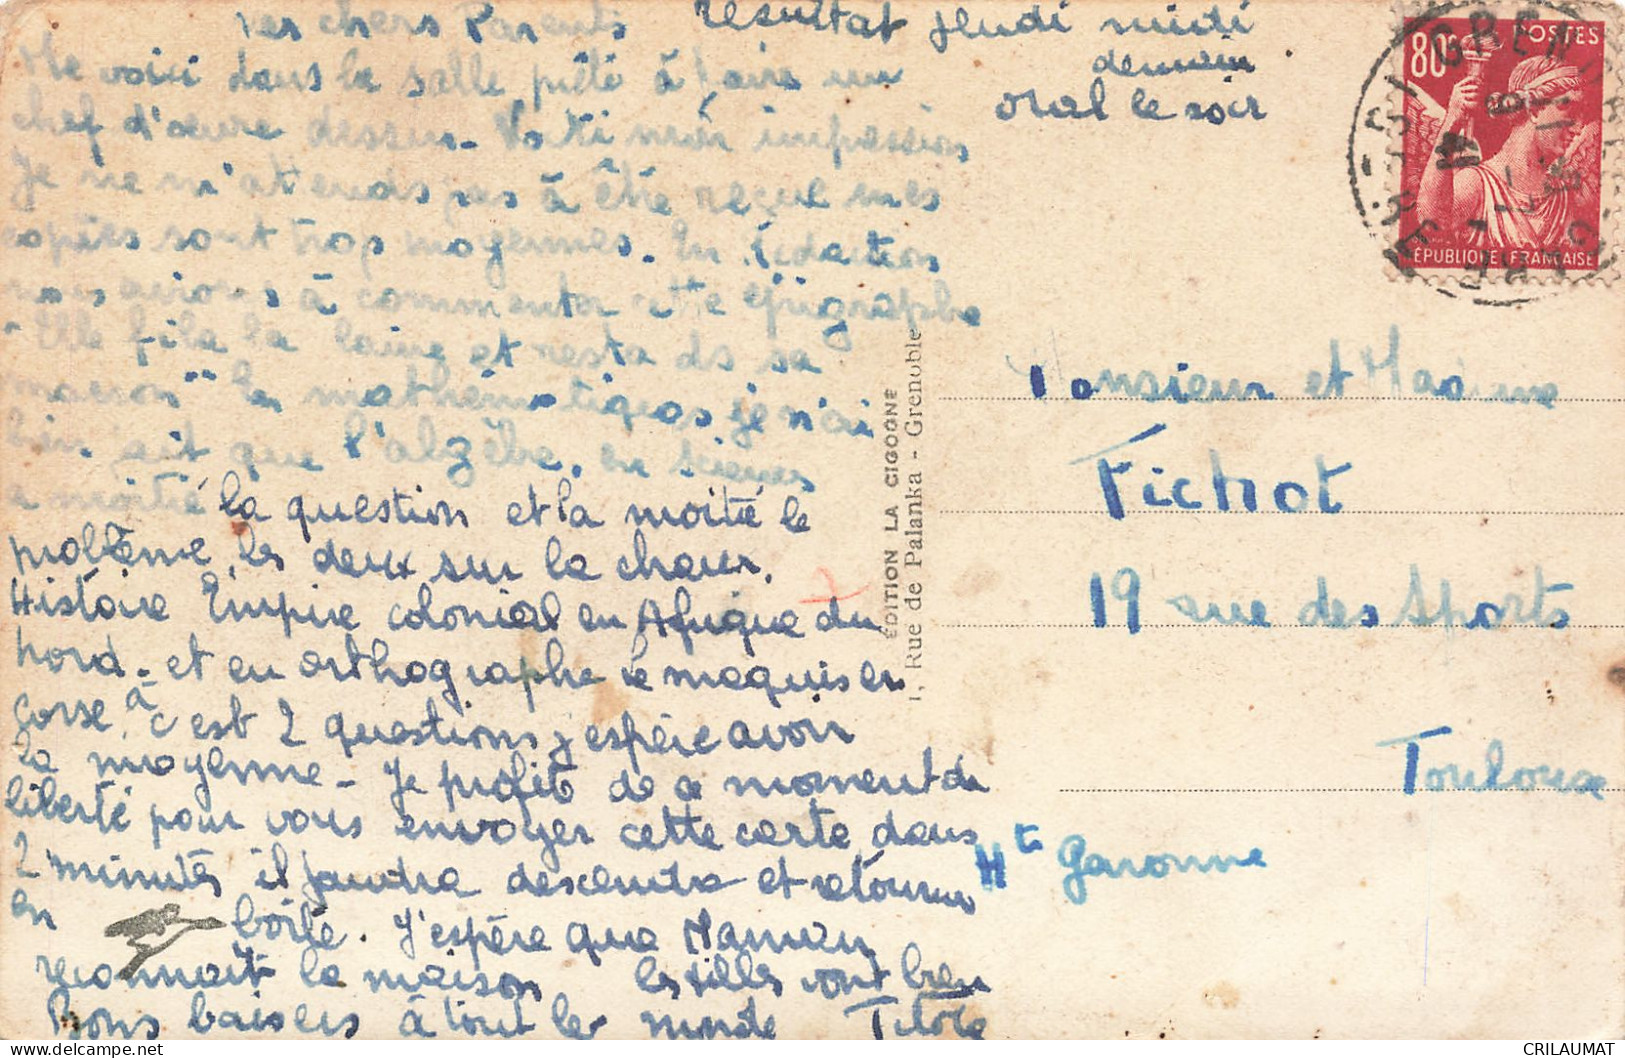 Mes chers Parents
Me voici dans la salle prête à faire un
chef d'œuvre dessus. Voici mon impression
Je ne m'attends pas à être reçue mes
copies sont trop moyennes. En rédaction
nous avions à commenter cette épigraphe
"Elle fila la laine et resta ds sa
maison" les mathématiques je n'ai
bien fait que l'algèbre, en sciences
a moitié la question et la moitié le
problème, les deux sur la chaleur.
Histoire Empire colonial en Afrique du
Nord - et en orthographe le maquis en
Corse, à c'est 2 questions j'espère avoir
la moyenne - Je profite de ce moment de
liberté pour vous envoyer cette carte dans
2 minutes il faudra descendre et retourner
en boîte. J'espère que Maman
reconnaît la maison les filles vont bien
Bons baisers à tout le monde Titote
résultat jeudi midi
demain
oral le soir
ÉDITION LA CIGOGNE
1, Rue de Palanka - Grenoble
80c POSTES
RÉPUBLIQUE FRANÇAISE
GRENOBLE
ISÈRE
Monsieur et Madame
Fichot
19 rue des Sports
Toulouse
Hte Garonne
CRILAUMAT